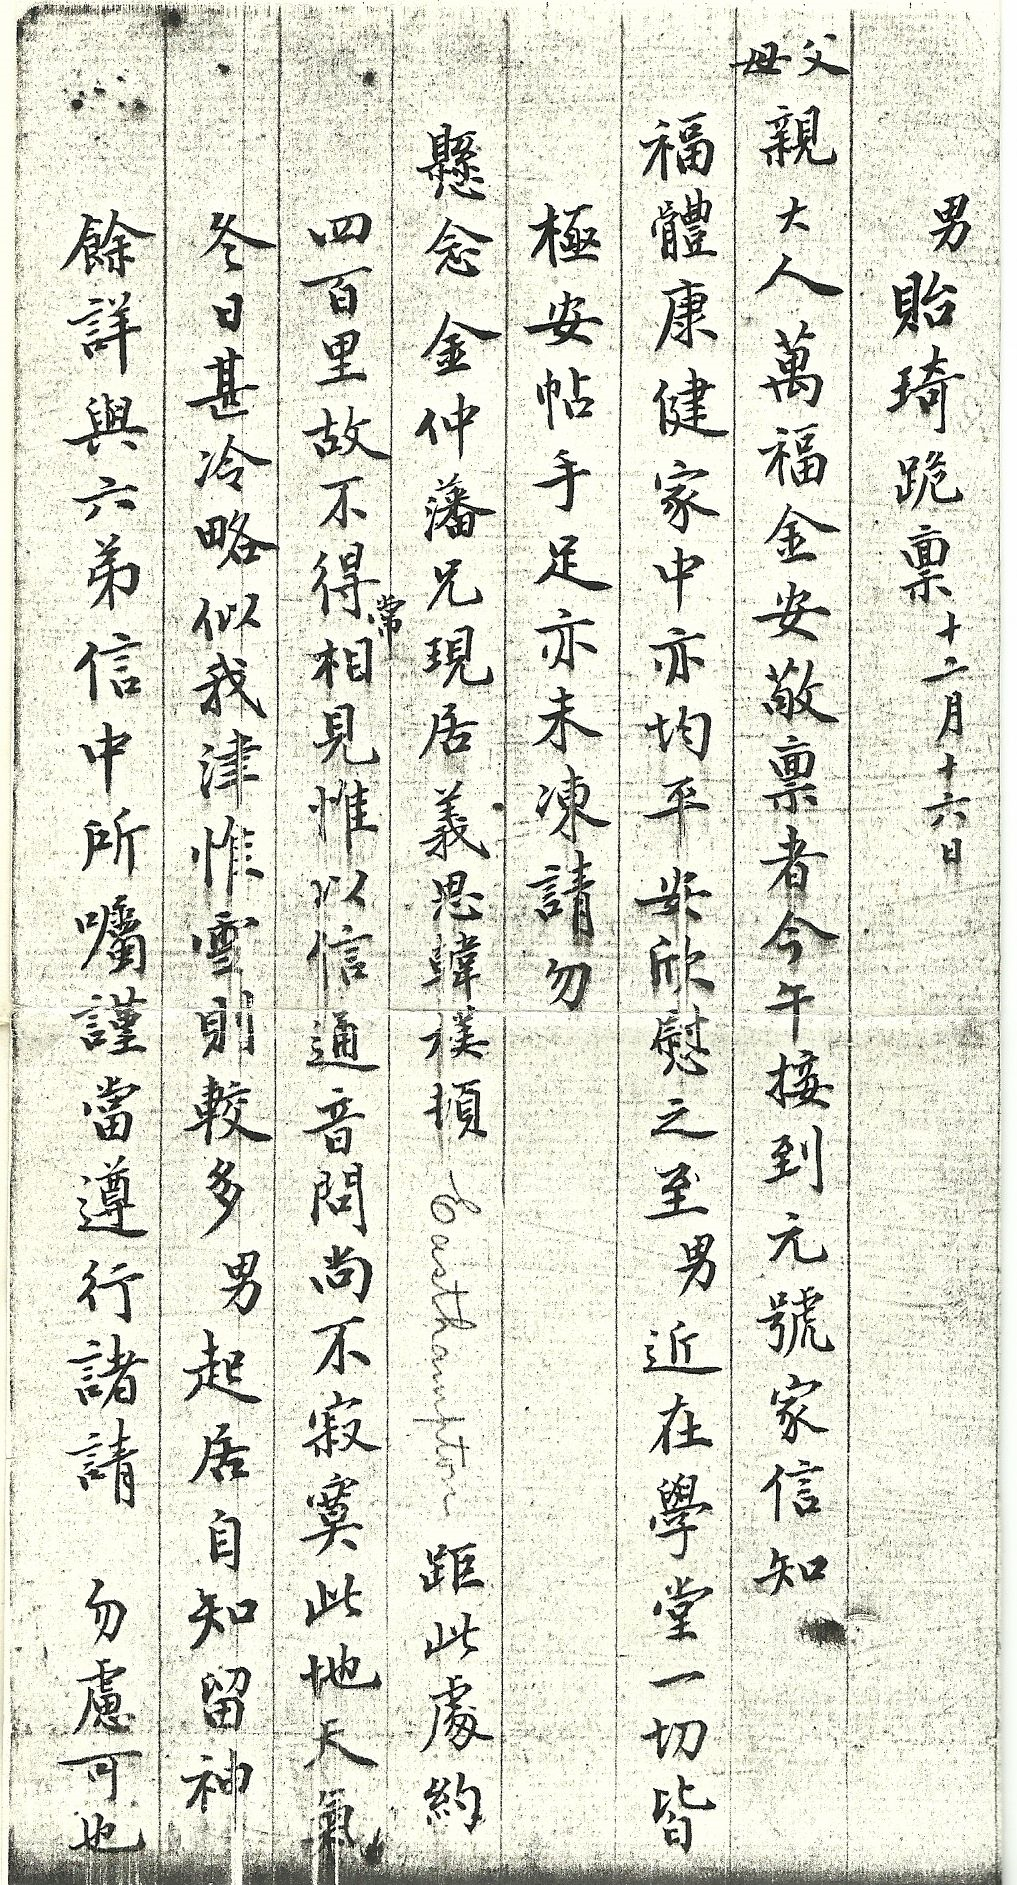 男貽琦跪禀十二月十六日
父母親大人萬福金安敬禀者今午接到元號家信知
福體康健家中亦均平安欣慰之至男近在學堂一切皆
極安帖手足亦未凍請勿
懸念金仲藩兄現居義思韓樸頓Easthampton距此處約
四百里故不得常相見惟以信通音問尚不寂寞此地天氣
冬日甚冷略似我津惟雪則較多男起居自知留神
餘詳與六弟信中所囑謹當遵行諸請勿慮可也